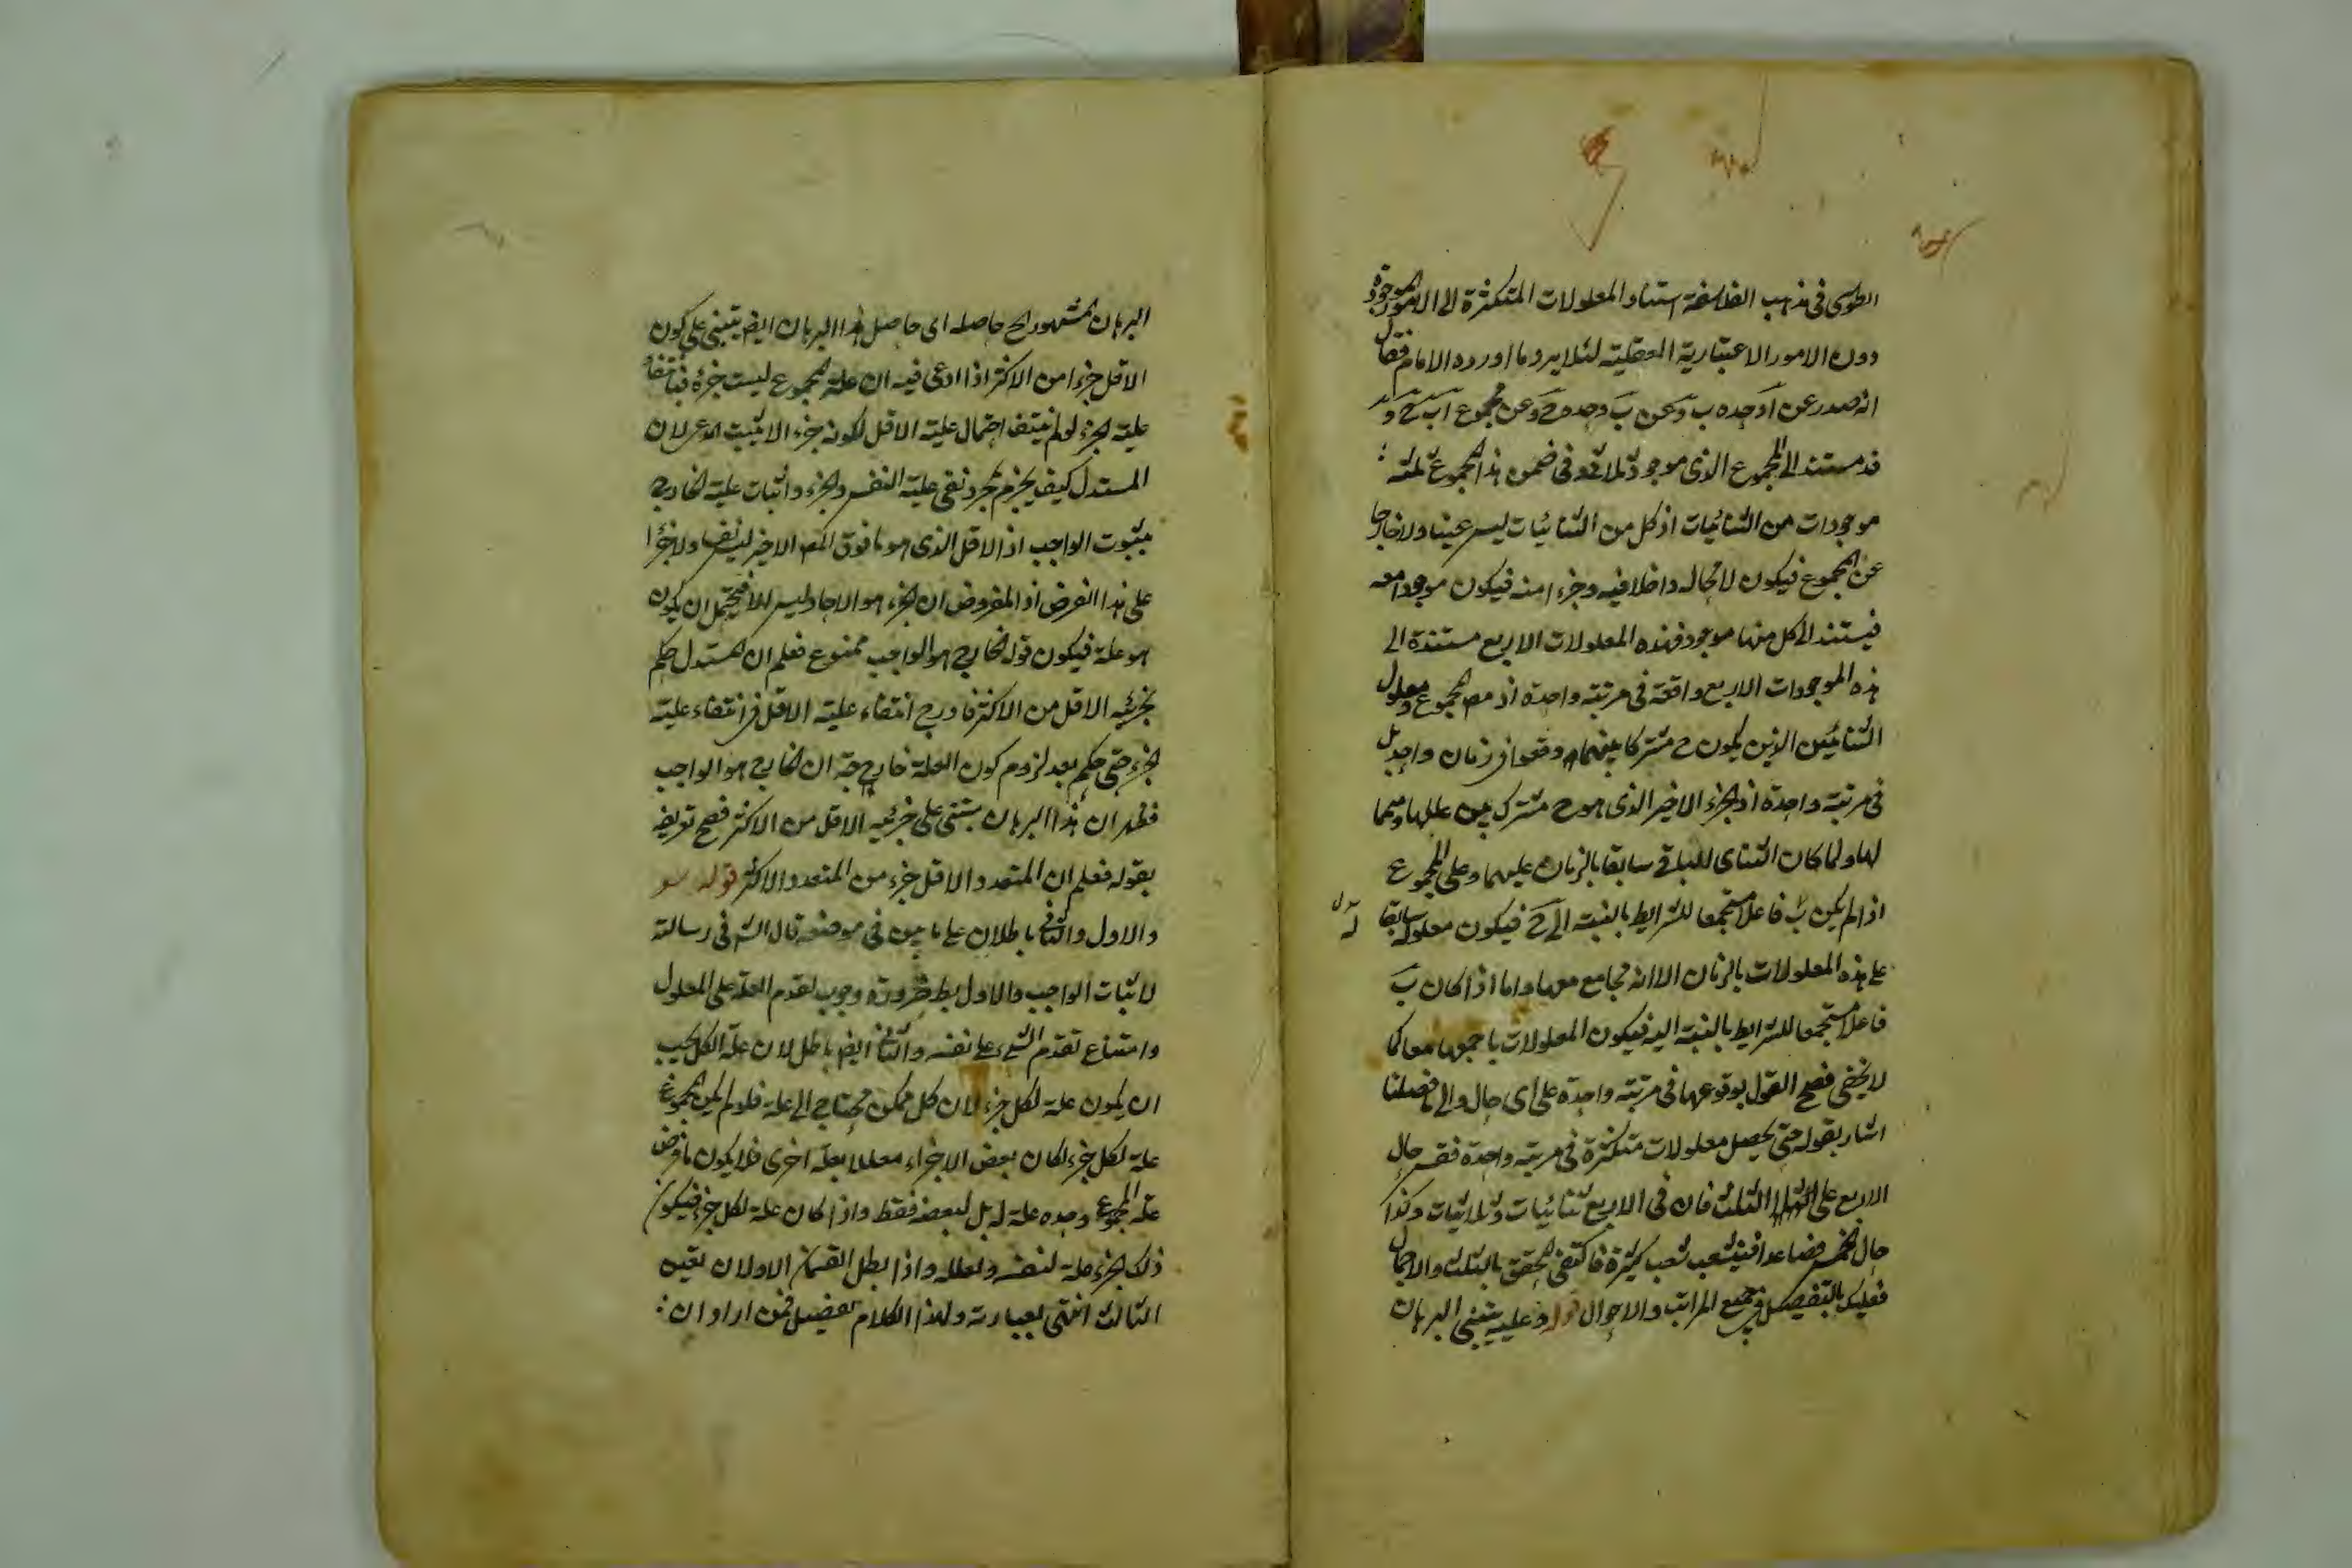 الطوسى فى مذهب الفلاسفة استناد المعلولات المتكثرة الى الامور الموجودة
دون الامور الاعتبارية العقلية لئلا يرد ما اورده الامام فقال
انه صدر عن آ وحده ب وعن ب وحده ج وعن مجموع اب ج د
قد مستند الى المجموع الذى موجود ثلاثى وفى ضمن هذا المجموع ثلثة
موجودات من الثنائيات اذ كل من الثنائيات ليس عينا ولا خارجا
عن المجموع فيكون لا محاله داخلا فيه وجزء امنه فيكون موجودا معه
فيستند الى كل منها موجود فهذه المعلولات الاربع مستندة الى
هذه الموجودات الاربع واقعة فى مرتبة واحدة اذ المجموع ومعلول
الثنائيين الذين يكون ح مشتركا بينهما وقعوا فى زمان واحد بل
فى مرتبة واحدة اذ الجزء الاخير الذى هو ح مشترك بين عللها
لها ولما كان الثنائى للباقى سابقا بالزمان عليهما وعلى المجموع
اذا لم يكن ب فاعلا مستجمعا للشرايط بالنسبة الى ح فيكون معلوله سابقا
على هذه المعلولات بالزمان الا انه مجامع معها واما اذا كان ب
فاعلا مستجمعا للشرايط بالنسبة اليه فيكون المعلولات باجمعها معا كما
لا يخفى فصح القول بوقوعها فى مرتبة واحدة على اى حال والى ما فصلنا
اشار بقوله حتى يحصل معلولات متكثرة فى مرتبة واحدة فقس حال
الاربع على الثلث فان فى الاربع ثنائيات وثلاثيات وكذا
حال الخمس فصاعدا فيتشعب شعب كثيرة فاكتفى المحقق بالثلث والاجمال
فعليك بالتفصيل فى جميع المراتب والاحوال قوله وعليه يبتنى البرهان
البرهان المشهور الخ حاصله اى حاصل هذا البرهان ايضا يبتنى على كون
الاقل جزءا من الاكثر اذا ادعى فيه ان علة المجموع ليست جزئه فبانتفاء
علية الجزء لو لم ينتف احتمال علية الاقل لكونه جزء الا يثبت المدعى لان
المستدل كيف يجزم بمجرد نفى علية النفس والجزء واثبات علية الخارج
بثبوت الواجب اذ الاقل الذى هو ما فوق المعلول الاخير ليس نفسا ولا جزءا
على هذا الفرض اذ المفروض ان الجزء هو الاحاد ليس الا فيحتمل ان يكون
هو علة فيكون قوله الخارج هو الواجب ممنوع فعلم ان المستدل حكم
بجزئية الاقل من الاكثر فادرج انتفاء علية الاقل فى انتفاء علية
الجزء حتى حكم بعد لزوم كون العلة خارجة ان الخارج هو الواجب
فظهر ان هذا البرهان يبتنى على جزئية الاقل من الاكثر فصح تعريفه
بقوله فعلم ان المتعدد الاقل جزء من المتعدد الاكثر قوله
والاول والثانى باطلان على ما بين فى موضعه قال الش فى رسالته
لاثبات الواجب والاول بط ضرورة وجوب تقدم العلة على المعلول
وامتناع تقدم الشىء على نفسه والثانى ايضا باطل لان علة الكل يجب
ان يكون علة لكل جزء لان كل ممكن محتاج الى علة فلو لم يكن المجموع
علة لكل جزء لكان بعض الاجزاء معللا بعلة اخرى فلا يكون ما فرض
علة المجموع وحده علة له بل لبعضه فقط واذا كان علة لكل جزء فيكون
ذلك الجزء علة لنفسه ولعلله واذا بطل القسمان الاولان تعين
الثالث انتهى بعبارته ولهذا الكلام تفصيل فمن اراد ان